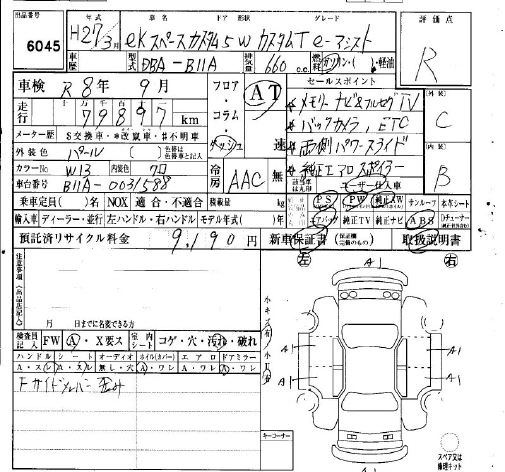 出品番号 年式 車名 ドア 形状 グレード 評価点
6045 H27/3月 eKスペースカスタム5W カスタムT e-アシスト R
車歴 型式 DBA-B11A 排気量 660 c.c. 燃料 ガソリン・軽油
車検 R8年9月 フロア・コラム・ダッシュ AT セールスポイント
走行 79897 km 速 メモリーナビ&フルセグTV
メーター歴 S交換車・*改竄車・#不明車 バックカメラ, ETC 外装 C
外装色 パール (色替は色替車と記入) 両側パワースライド
カラーNo W13 内装色 クロ 冷房 AAC 無 純正エアロスポイラー 内装 B
車台番号 B11A-0031588 ユーザー仕入車
乗車定員 名 NOX 適合・不適合 積載量 kg PS PW 純正AW サンルーフ 本革シート
輸入車 ディーラー・並行 左ハンドル・右ハンドル モデル年式 年 エアバッグ 純正TV 純正ナビ ABS
預託済リサイクル料金 9,190円 新車保証書 取扱説明書
注意事項(出品店記入) 左 A1 右
小キズ有 小凹有
A1 A1
A1 A1
月 日までに名変できる方
検査員記入 FW A・X要ス 室内シート コゲ・穴・汚れ・破れ
ハンドル シート オーディオ ホイル(カバー) エアロ ドアミラー
A・スレ A・スレ 無し・穴 A・ワレ A・ワレ A・ワレ
キーコーナー
A1
スペア又は修理キット